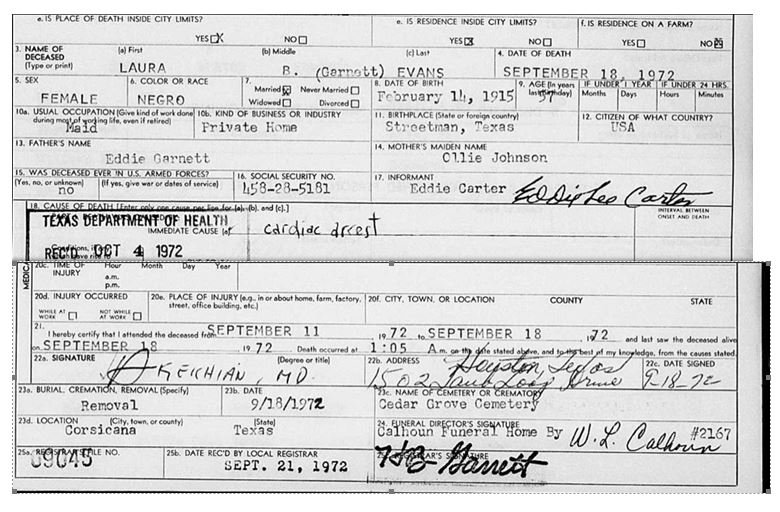 d. IS PLACE OF DEATH INSIDE CITY LIMITS? e. IS RESIDENCE INSIDE CITY LIMITS? f. IS RESIDENCE ON A FARM?
YES☒ NO☐ YES☒ NO☐ YES☐ NO☒
3. NAME OF DECEASED (Type or print) (a) First (b) Middle (c) Last 4. DATE OF DEATH
LAURA B. (Garnett) EVANS SEPTEMBER 18, 1972
5. SEX 6. COLOR OR RACE 7. Married☒ Never Married☐ 8. DATE OF BIRTH 9. AGE (In years last birthday) IF UNDER 1 YEAR IF UNDER 24 HRS.
FEMALE NEGRO Widowed☐ Divorced☐ February 14, 1915 57 Months Days Hours Minutes
10a. USUAL OCCUPATION (Give kind of work done during most of working life, even if retired) 10b. KIND OF BUSINESS OR INDUSTRY 11. BIRTHPLACE (State or foreign country) 12. CITIZEN OF WHAT COUNTRY?
Maid Private Home Streetman, Texas USA
13. FATHER'S NAME 14. MOTHER'S MAIDEN NAME
Eddie Garnett Ollie Johnson
15. WAS DECEASED EVER IN U.S. ARMED FORCES? 16. SOCIAL SECURITY NO. 17. INFORMANT
(Yes, no, or unknown) (If yes, give war or dates of service)
no 458-28-5181 Eddie Carter Eddie Leo Carter
18. CAUSE OF DEATH [Enter only one cause per line for (a), (b), and (c).] INTERVAL BETWEEN ONSET AND DEATH
TEXAS DEPARTMENT OF HEALTH
IMMEDIATE CAUSE (a) cardiac arrest
REC'D OCT 4 1972
Conditions, if
20c. TIME OF INJURY Hour Month Day Year
a.m.
p.m.
20d. INJURY OCCURRED 20e. PLACE OF INJURY (e.g., in or about home, farm, factory, street, office building, etc.) 20f. CITY, TOWN, OR LOCATION COUNTY STATE
WHILE AT WORK ☐ NOT WHILE AT WORK ☐
21. I hereby certify that I attended the deceased from SEPTEMBER 11 1972 to SEPTEMBER 18, 1972 and last saw the deceased alive
on SEPTEMBER 18 1972 Death occurred at 1:05 A m. on the date stated above, and to the best of my knowledge, from the causes stated.
22a. SIGNATURE (Degree or title) 22b. ADDRESS Houston, Texas 22c. DATE SIGNED
KEICHIAN, MD. 1502 Taub Loop Drive 9-18-72
23a. BURIAL, CREMATION, REMOVAL (Specify) 23b. DATE 23c. NAME OF CEMETERY OR CREMATORY
Removal 9/18/1972 Cedar Grove Cemetery
23d. LOCATION (City, town, or county) (State) 24. FUNERAL DIRECTOR'S SIGNATURE
Corsicana Texas Calhoun Funeral Home By W. L. Calhoun #2167
25a. REGISTRAR'S FILE NO. 25b. DATE REC'D BY LOCAL REGISTRAR REGISTRAR'S SIGNATURE
09045 SEPT. 21, 1972 Garrett